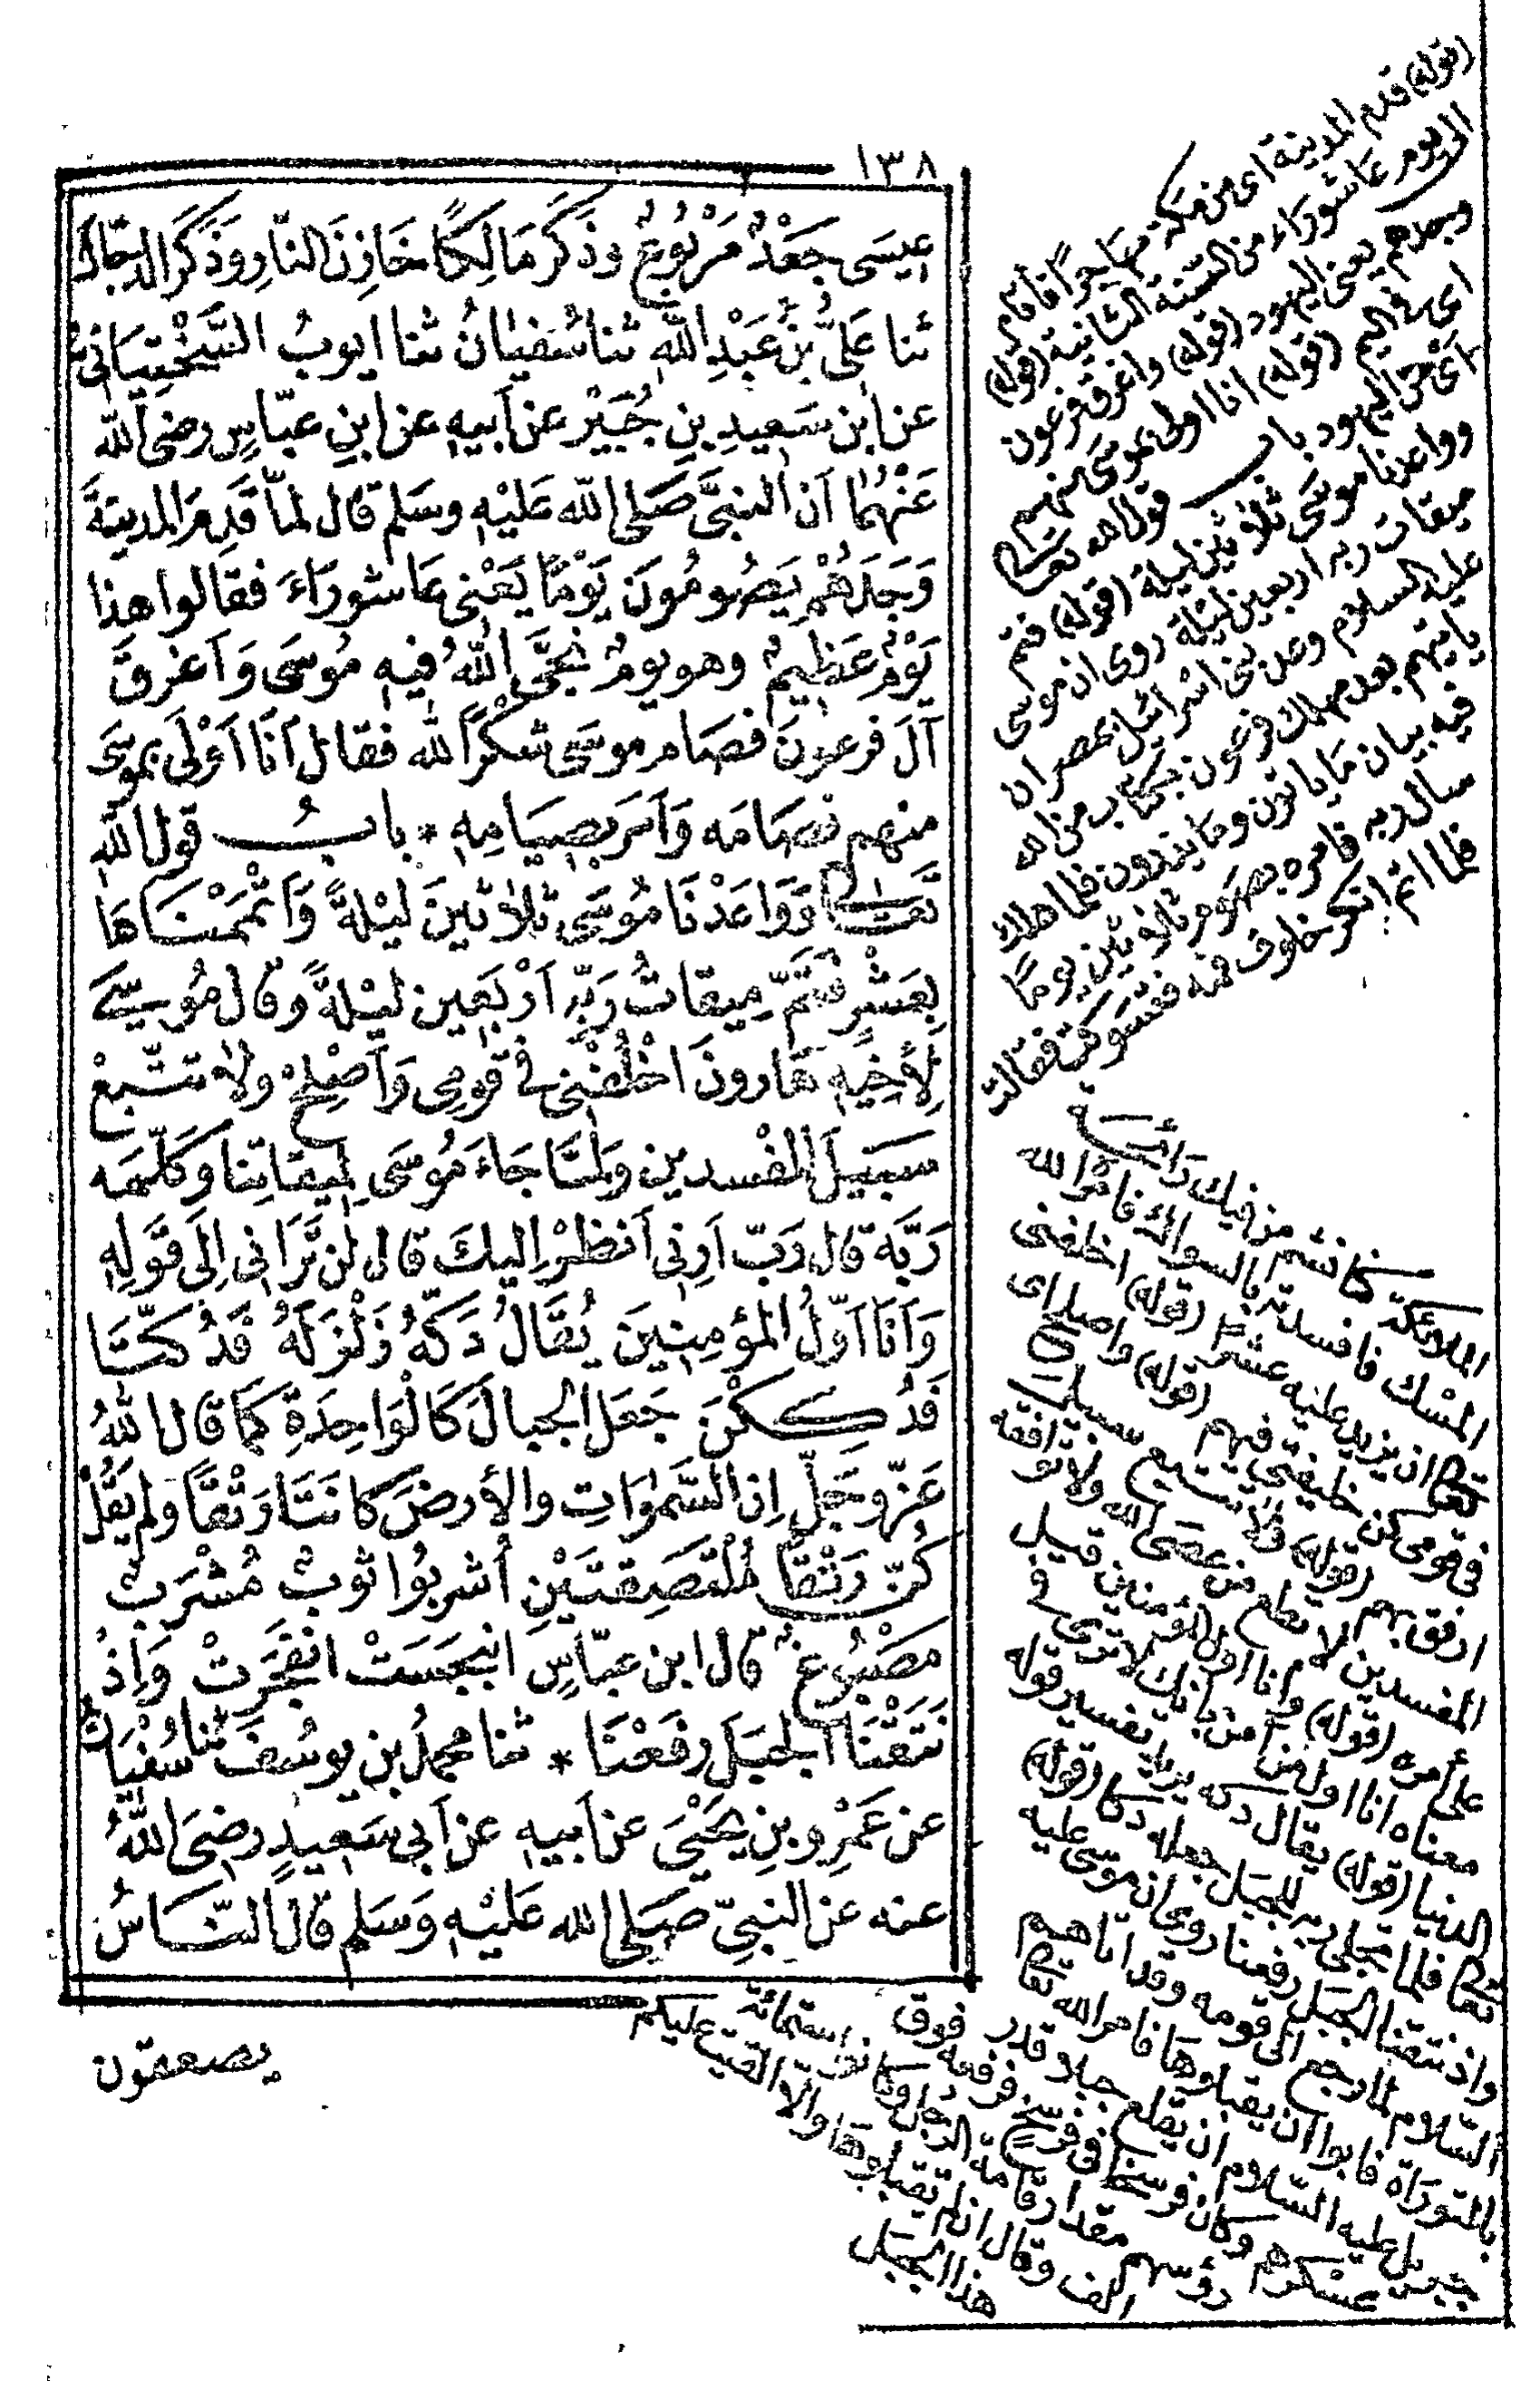 ١٣٨
عِيسَى جَعْدٌ مَرْبُوعٌ وذَكَرَ مَالِكًا خَازِنَ النّارِ وَذَكَرَ الدجّالَ
ثنا عَلِىُّ بْنُ عَبْدِ اللّٰهِ ثنا سُفيٰانُ ثنا ايوبُ السَّخْتِيَانِىُّ
عن ابن سَعِيدِ بنِ جُبَيْر عن اَبيهِ عن ابنِ عبّاسٍ رضى اللّٰه
عَنْهُمَا اَن النبىَّ صَلى اللّٰه عَلَيْهِ وسَلم قال لمّا قَدِمَ المدينَةَ
وَجَدَهُمْ يَصُومُونَ يَوْمًا يَعْنِى عَاشورَاءَ فقالوا هذا
يَوْمٌ عَظِيمٌ وهو يومٌ نَجَّى اللّٰهُ فيهِ مُوسَى وَاَغرَقَ
آلَ فرعونَ فصَامر موسَى شكْرًا لله فقال اَنَا اَوْلَى بموسَى
منهم فصَامَه وَاَمَرَ بصِيَامِهِ * بابُ قول اللّٰهِ
تَعَالىٰ وَوَاعَدْنَا مُوسَى ثلاثينَ ليْلةً وَاَتْمَمْنَاهَا
بعَشْرٍ فتَمَّ مِيقاتُ رَبِّهِ اَرْبَعِين ليْلةً وقال مُوسٰى
لِأَخِيهِ هَارونَ اخْلُفْنِى فى قومِى وَاَصْلِحْ ولا تتّبِعْ
سَبِيلَ المفْسدين وَلمّا جَاءَ مُوسَى لِميقاتِنا وَكلّمَه
رَبَّه قال رَبّ اَرِنِى اَنظرْ اِليكَ قال لَن تَرَانى اِلَى قَوْلِهِ
وَاَنَا اَوّلُ المؤمِنِينَ يُقَالُ دَكَّهُ زَلْزَلَهُ فَدُكَّتَا
فَدُكِكْنَ جَعَلَ الجبالَ كَالْوَاحِدَةِ كَمَا قال اللّٰهُ
عَزّ وجَلّ اِن السَّمٰوَاتِ والأرضَ كانَتَا رَتْقًا ولم يَقُلْ
كُنّ رَتْقًا مُلْتَصِقَتَيْنِ أُشرِبُوا ثوبٌ مُشْرَبٌ
مَصْبُوغٌ قال ابن عبّاسٍ انبجَسَتْ انفَجَرَتْ وَاِذْ
نَتَقْنَا الجبَلَ رفَعْنَا * ثنا محمدُ بن يوسُفَ ثنا سُفْيَانُ
عن عَمْرِو بنِ يَحْيَى عن اَبيهِ عن اَبى سَعِيدٍ رضىَ اللّٰهُ
عنه عن النبىّ صَلى الله عَلَيْهِ وَسَلم قال النّاسُ
يصعقون
(قوله) قدم المدينة اى من مكة مهاجرًا فاقام
الى يوم عاشوراء من السّنة الثانية (قوله)
وجدهم يعنى اليهود (قوله) واغرق فرعون
اى فى اليم (قوله) انا اولى بموسى منهم
اى من اليهود باب قول الله تعالى
وواعدنا موسى ثلاثين ليلة (قوله) فتم
ميقات ربه اربعين ليلة روى ان موسى
عليه السلام وعد بنى اسرائيل بمصر ان
ياتيهم بعد مهلك فرعون بكتاب من الله
فيه بيان ما ياتون وما يذرون فلما هلك
سال ربه فامره بصوم ثلاثين يومًا
فلما اتم انكر خلوف فمه فتسوك فقالت
الملائكة كنا نشم من فيك رائحة
المسك فافسدته بالسواك فامر الله
تعالى ان يزيد عليه عشرًا (قوله) اخلفنى
فى قومى كن خليفتى فيهم (قوله) واصلح اى
ارفق بهم (قوله) ولا تتبع سبيل
المفسدين لا تطع من عصى الله ولا توافقه
على أمره (قوله) وانا اول المؤمنين قيل
معناه انا اول من آمن بانك لا ترى فى
الدنيا (قوله) يقال دكه يريد تفسير قوله
تعالى فلما تجلى ربه للجبل جعله دكا (قوله)
واذ نتقنا الجبل رفعنا روى ان موسى عليه
السّلام لما رجع الى قومه وقد اتاهم
بالتوراة فابوا ان يقبلوها فامر الله تعالى
جبريل عليه السّلام ان يقلع جبلا قدر
عسكرهم وكان فرسخا فى فرسخ فرفعه فوق
رؤسهم مقدار قامة الرجل وكانوا ستمائة
الف وقال ان لم تقبلوها والا القيت عليكم
هذا الجبل